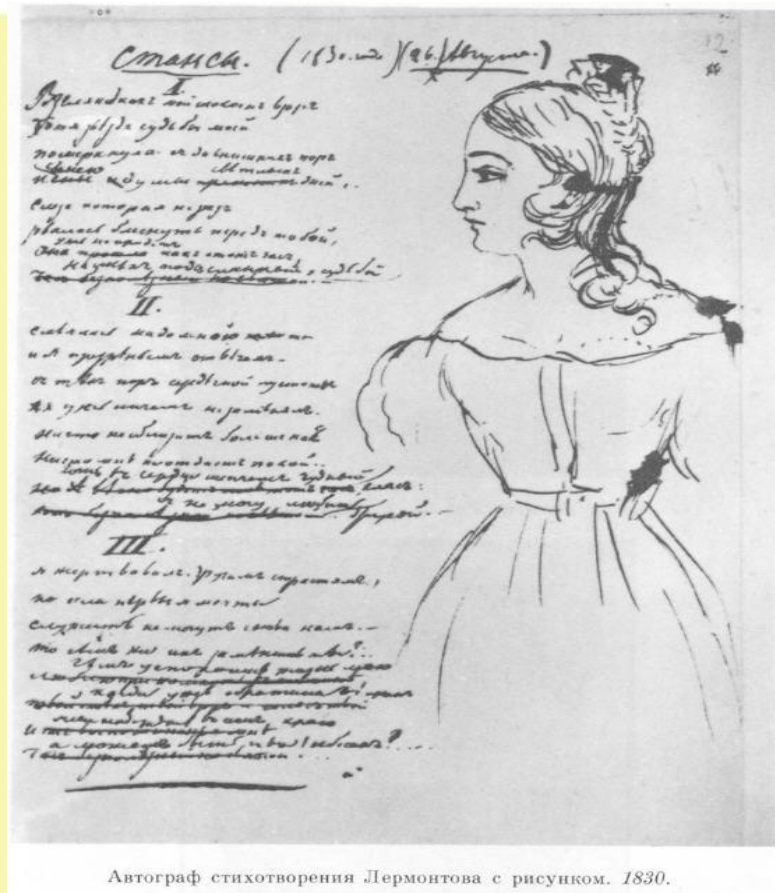 Стансы. (1830 года) (26 Августа.)
12
I.
Взгляни какъ мой спокоенъ взоръ
Хотя звѣзда судьбы моей
померкнула съ давнишнихъ поръ
и съ нею думы свѣтлыхъ дней..
слеза которая не разъ
рвалась блеснуть передъ тобой,
Ужъ не придетъ какъ этотъ часъ
На смѣхъ подосланный судьбой
II.
смѣялась надо мною ты
и я презрѣньемъ отвѣчалъ -
съ тѣхъ поръ сердечной пустоты
я ужъ ничемъ не замѣнялъ.
ничто не сблизитъ больше насъ
ничто мнѣ не отдастъ покой..
хоть въ сердце шепчетъ чудный гласъ:
я не могу любить другой.
III.
я жертвовалъ другимъ страстямъ,
но если первыя мечты
служить не могутъ снова намъ -
то чѣмъ же ихъ замѣнишь ты?..
Чѣмъ успокоишь жизнь мою
когда ужъ обратила въ прахъ
мои надежды въ семъ краю
а можетъ быть и въ небесахъ?...
Автограф стихотворения Лермонтова с рисунком. 1830.